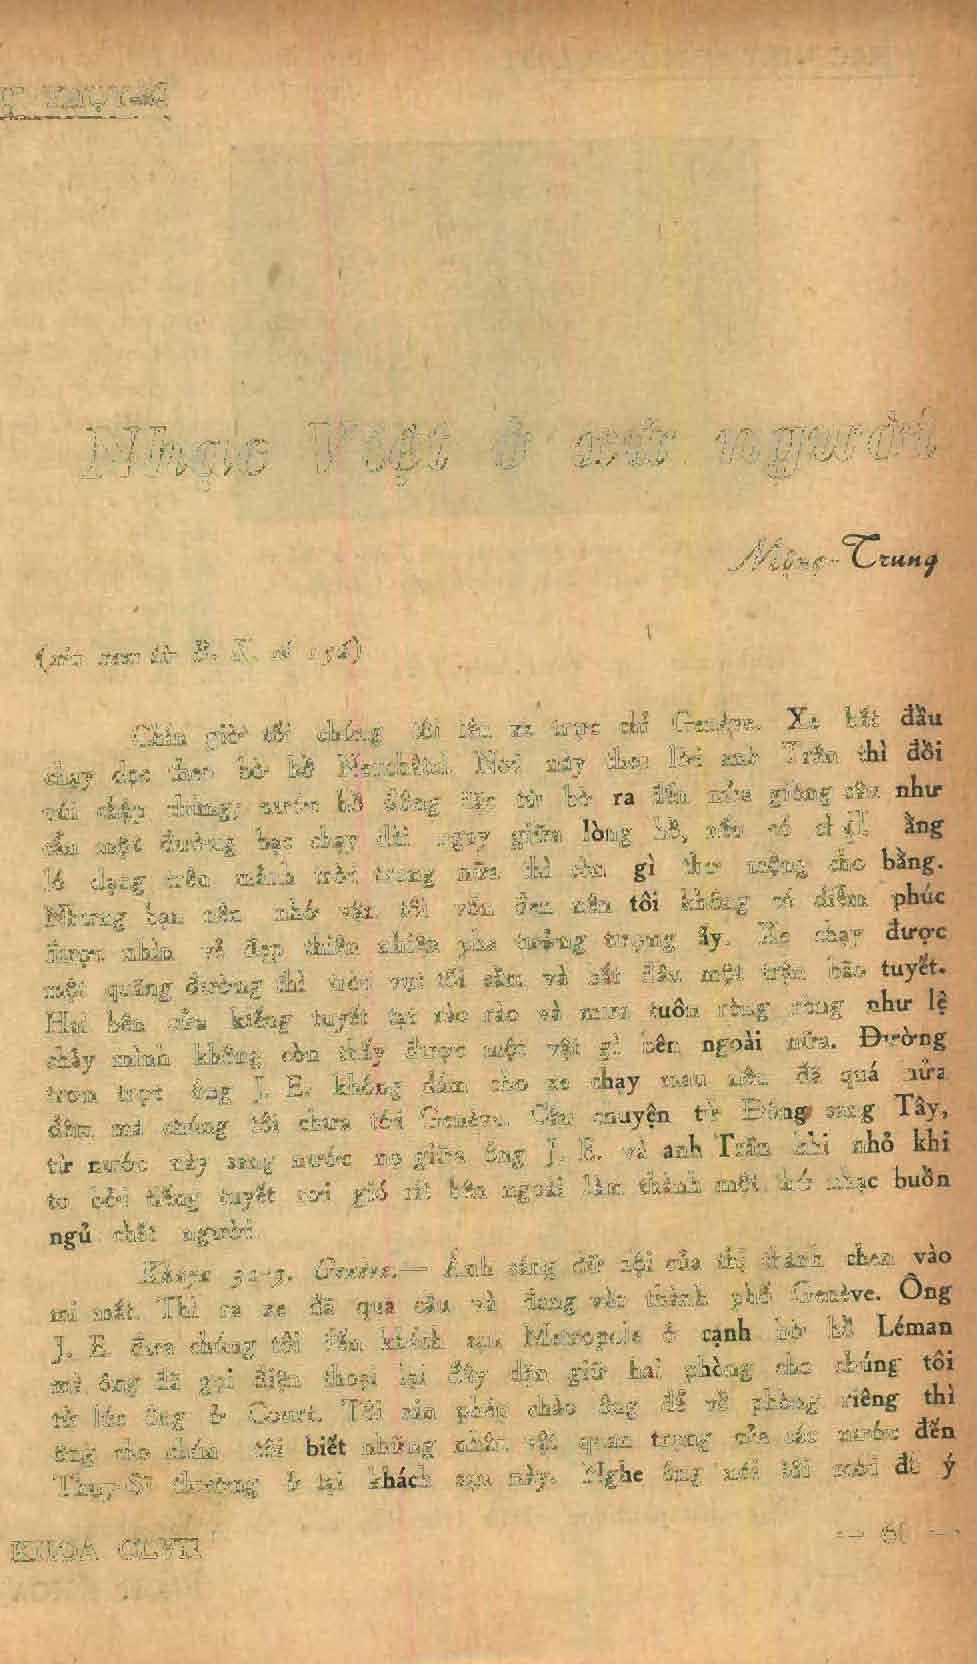 Nhạc Việt ở xứ người
Mộng-Trung
(xin xem từ B. K. số
Chín giờ tối chúng tôi lên xe trực chỉ Genève. Xe bắt đầu
chạy dọc theo bờ hồ Neuchâtel. Nơi này theo lời anh Trần thì đồi
núi chập chùng, nước hồ đông đặc từ bờ ra đến nửa giòng gần như
cẩn một đường bạc chạy dài ngay giữa lòng hồ, nếu có chị Hằng
ló dạng trên mảnh trời trong nữa thì còn gì thơ mộng cho bằng.
Nhưng bạn nên nhớ vận tôi vốn đen nên tôi không có diễm phúc
được nhìn vẻ đẹp thiên nhiên pha tưởng tượng ấy. Xe chạy được
một quãng đường thì trời vụt tối sầm và bắt đầu một trận bão tuyết.
Hai bên cửa kiếng tuyết tạt rào rào và mưa tuôn ròng ròng như lệ
chảy mình không còn thấy được một vật gì bên ngoài nữa. Đường
trơn trợt ông J. E. không dám cho xe chạy mau nên đã quá nửa
đêm mà chúng tôi chưa tới Genève. Câu chuyện từ Đông sang Tây,
từ nước này sang nước nọ giữa ông J. E. và anh Trần khi nhỏ khi
to bởi tiếng tuyết rơi gió rít bên ngoài làm thành một thứ nhạc buồn
ngủ chết người.
Khuya Genève.— Ánh sáng dữ dội của thị thành chen vào
mi mắt. Thì ra xe đã qua cầu và đang vào thành phố Genève. Ông
J. E. đưa chúng tôi đến khách sạn Metropole ở cạnh bờ hồ Léman
mà ông đã gọi điện thoại lại đây dặn giữ hai phòng cho chúng tôi
từ lúc ông ở Court. Tôi xin phép chào ông để về phòng riêng thì
ông cho chúng tôi biết những nhân vật quan trọng của các nước đến
Thụy-Sĩ thường ở tại khách sạn này. Nghe ông nói tôi mới để ý
KHOA CLVII